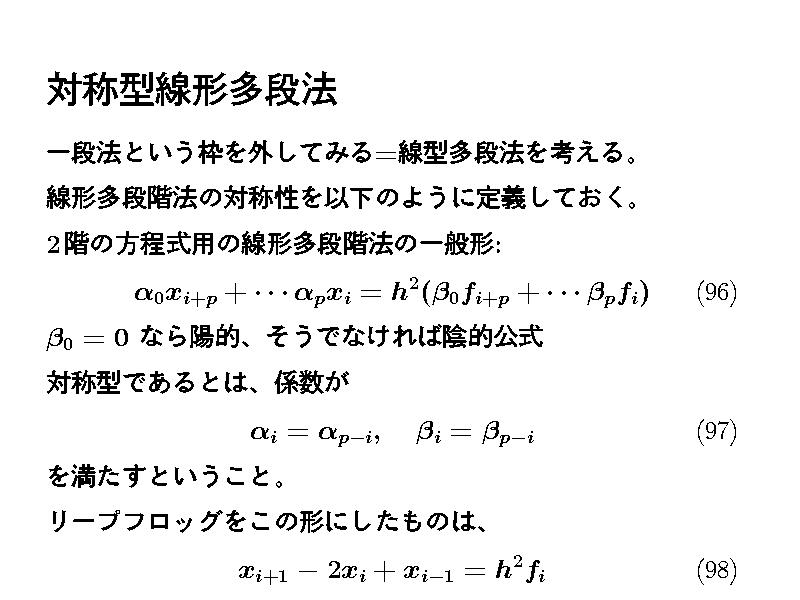 対称型線形多段法
一段法という枠を外してみる=線型多段法を考える。
線形多段階法の対称性を以下のように定義しておく。
2階の方程式用の線形多段階法の一般形:
α₀xᵢ₊ₚ + ⋯ αₚxᵢ = h²(β₀fᵢ₊ₚ + ⋯ βₚfᵢ) (96)
β₀ = 0 なら陽的、そうでなければ陰的公式
対称型であるとは、係数が
αᵢ = αₚ₋ᵢ, βᵢ = βₚ₋ᵢ (97)
を満たすということ。
リープフロッグをこの形にしたものは、
xᵢ₊₁ − 2xᵢ + xᵢ₋₁ = h²fᵢ (98)